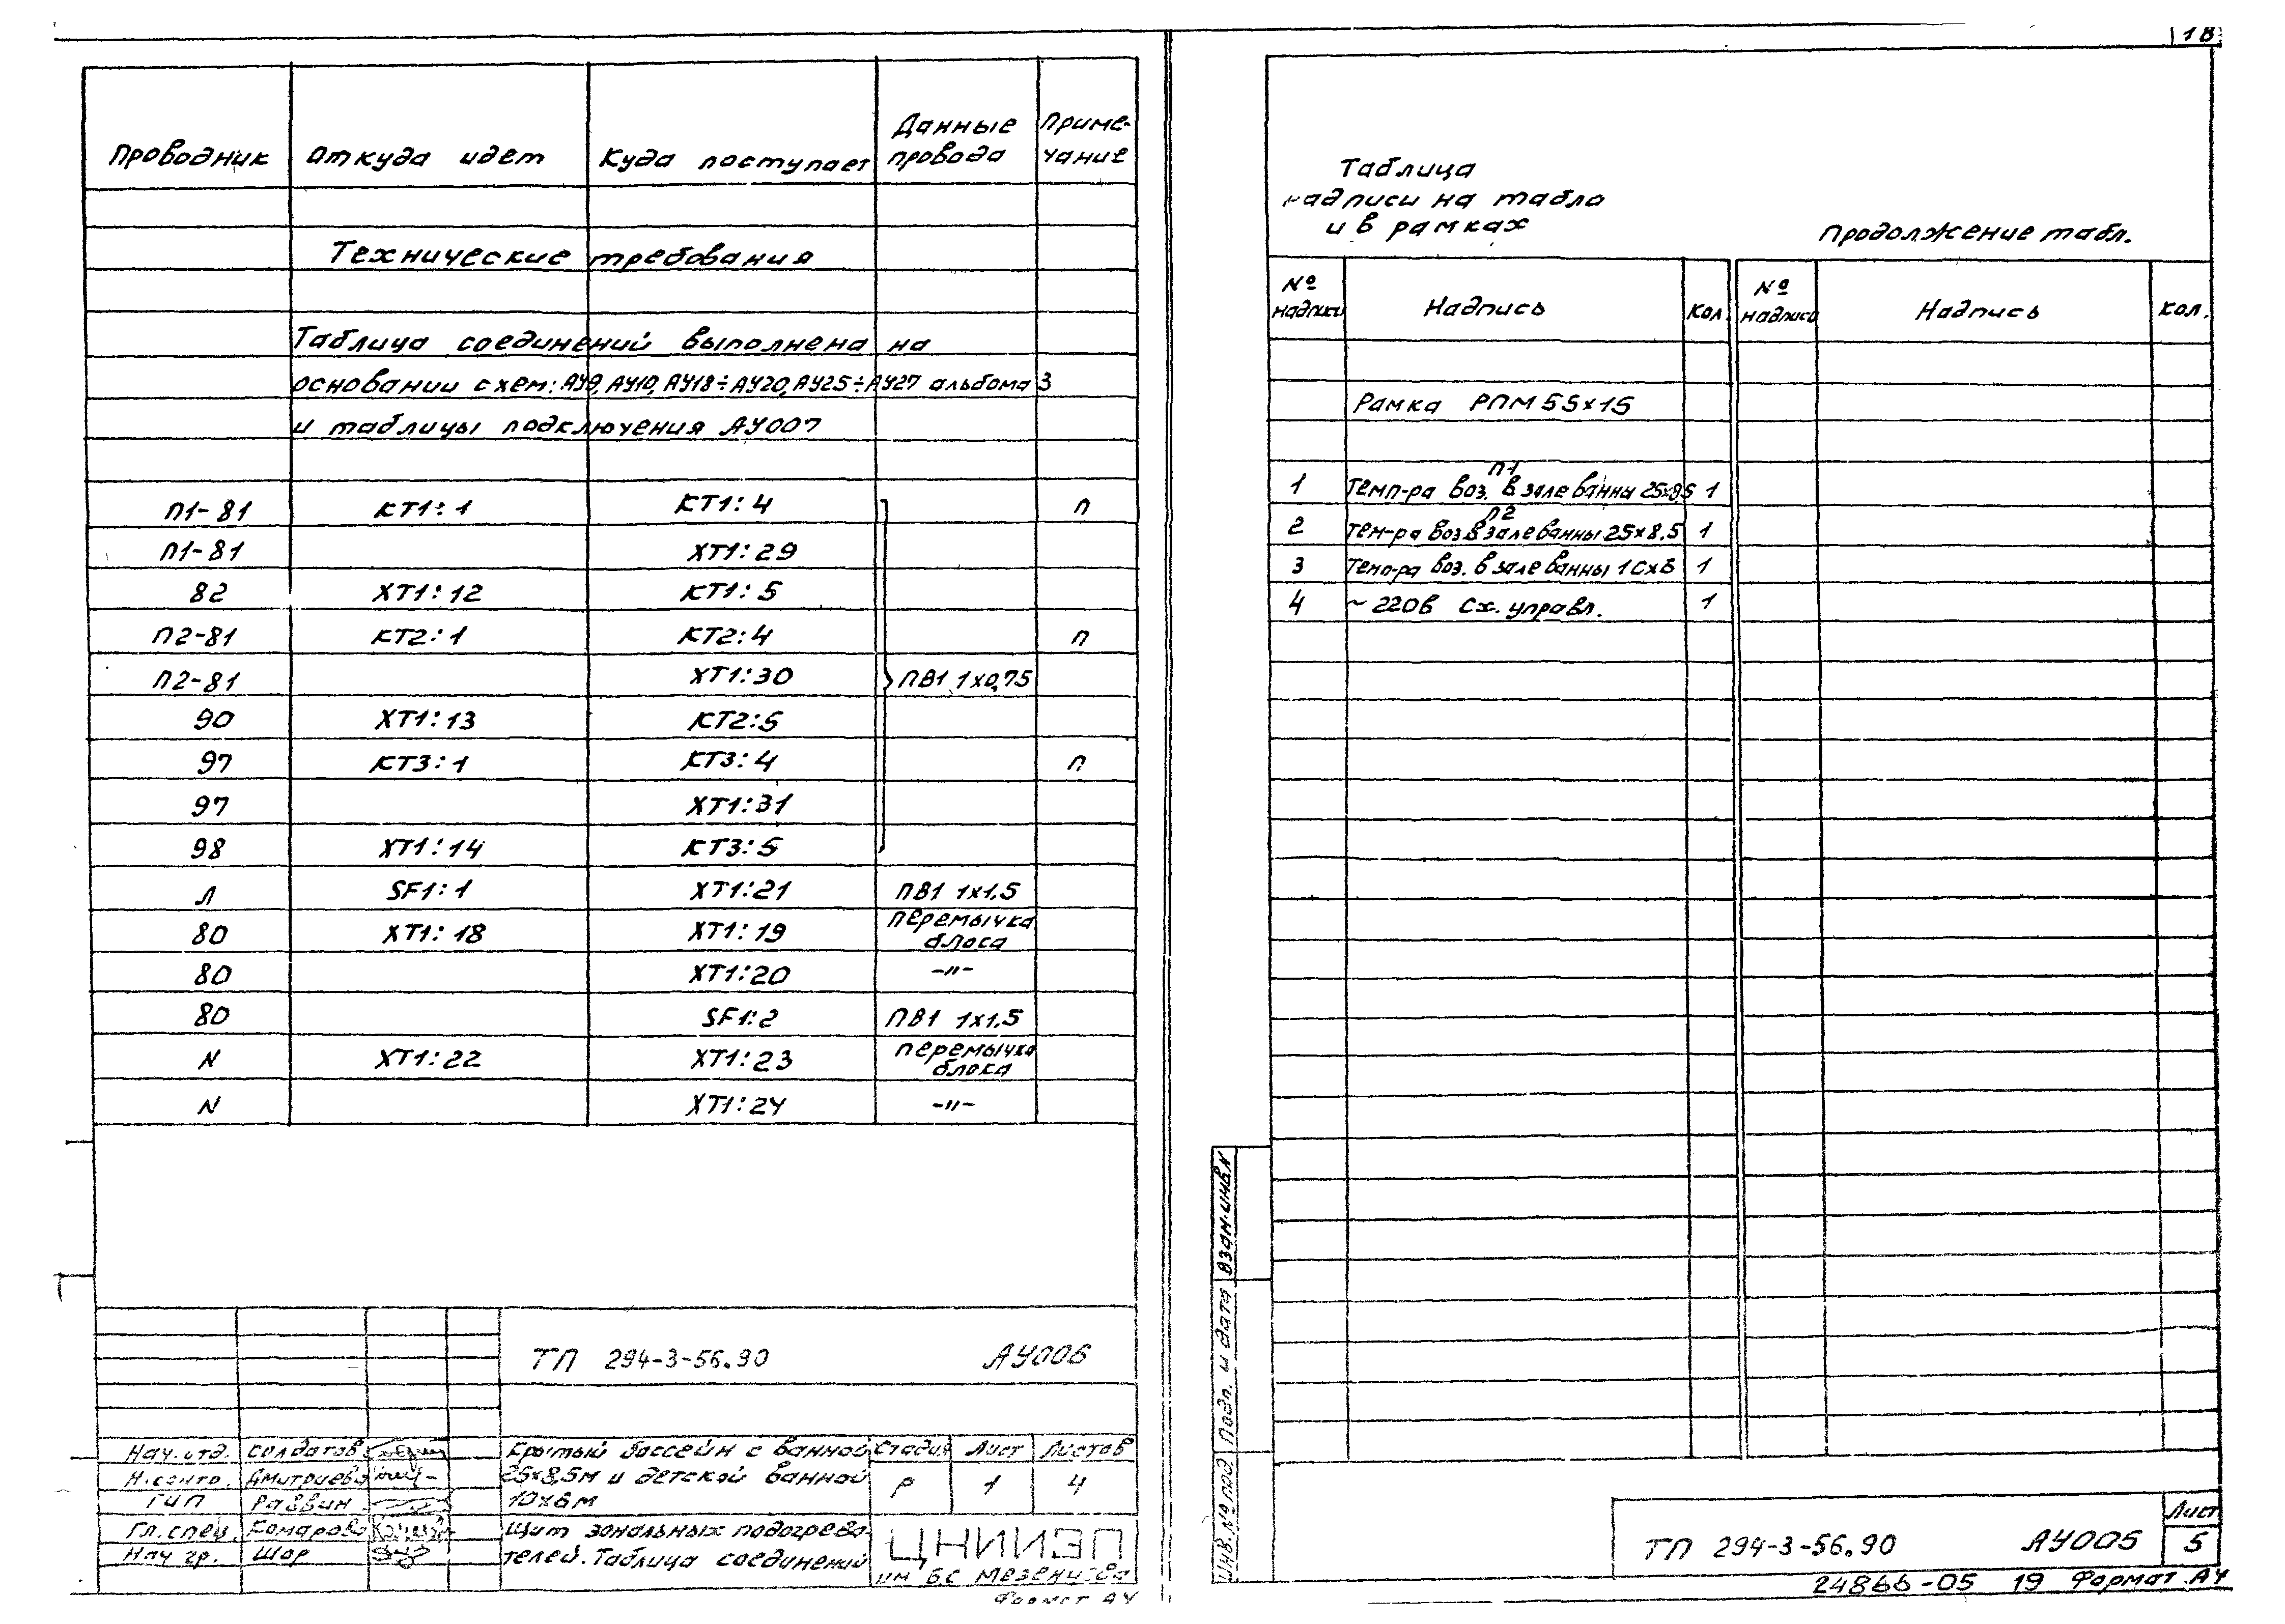 18
Проводник | Откуда идет | Куда поступает | Данные провода | Примечание
Технические требования
Таблица соединений выполнена на
основании схем: АУ9, АУ10, АУ18÷АУ20, АУ25÷АУ27 альбома 3
и таблицы подключения АУ007
П1-81 КТ1:1 КТ1:4 П
П1-81 ХТ1:29
82 ХТ1:12 КТ1:5
П2-81 КТ2:1 КТ2:4 П
П2-81 ХТ1:30 ПВ1 1х0,75
90 ХТ1:13 КТ2:5
97 КТ3:1 КТ3:4 П
97 ХТ1:31
98 ХТ1:14 КТ3:5
Л SF1:1 ХТ1:21 ПВ1 1х1,5
80 ХТ1:18 ХТ1:19 перемычка блока
80 ХТ1:20 -"-
80 SF1:2 ПВ1 1х1,5
N ХТ1:22 ХТ1:23 перемычка блока
N ХТ1:24 -"-
ТП 294-3-56.90 АУ006
Нач.отд. Солдатов
Н.контр. Дмитриева
ГИП Раввин
Гл.спец. Комарова
Нач.гр. Шор
Крытый бассейн с ванной
25х8,5м и детской ванной
10х6м
Стадия Лист Листов
Р 1 4
Щит зональных подогрева-
телей. Таблица соединений
ЦНИИЭП
им. Б.С. Мезенцева
Формат А4
Таблица
надписи на табло
и в рамках
Продолжение табл.
№ надписи | Надпись | Кол. | № надписи | Надпись | Кол.
Рамка РПМ 55х15
1 Темп-ра воз. П1 в зале ванны 25х8,5 1
2 Тем-ра воз П2 в зале ванны 25х8,5 1
3 Темп-ра воз. в зале ванны 10х6 1
4 ~220в Сх. управл. 1
Взам.инв.N
Подп. и дата
Инв.№ под
ТП 294-3-56.90 АУ005
Лист
5
24866-05 19 Формат А4